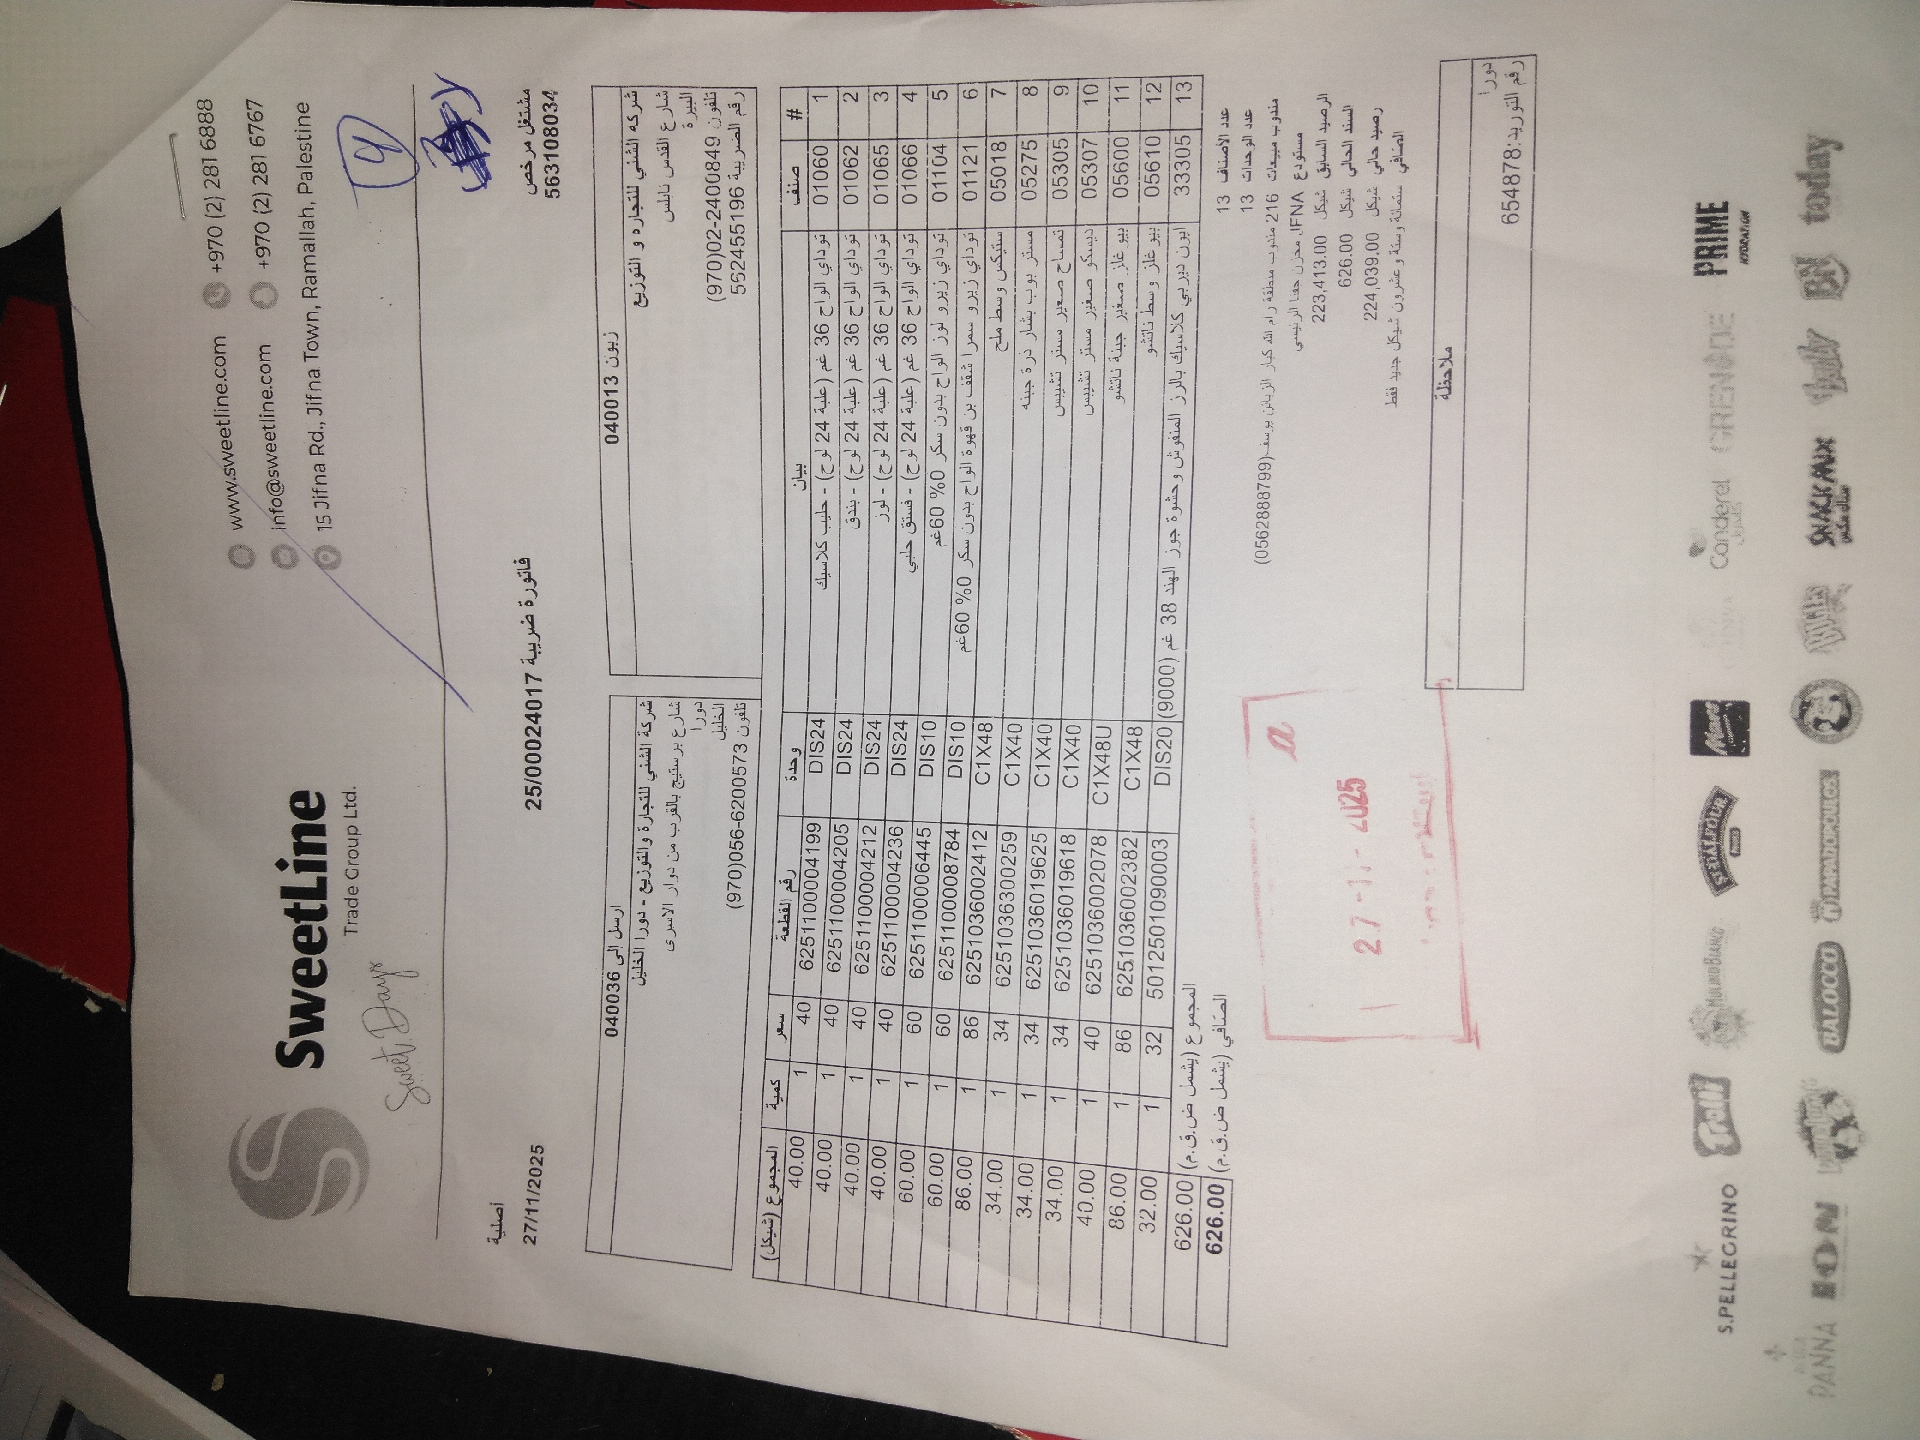 SweetLine
Trade Group Ltd.
www.sweetline.com +970 (2) 281 6888
info@sweetline.com +970 (2) 281 6767
15 Jifna Rd., Jifna Town, Ramallah, Palestine
Sweet Days
9
أصلية
مشتغل مرخص
27/11/2025
فاتورة ضريبة 25/00024017
563108034
زبون 040013
شركه الشني للتجاره و التوزيع
شارع القدس نابلس
البيرة
تلفون 02-2400849(970)
رقم الضريبة 552455196
ارسل إلى 040036
شركة الشني للتجارة والتوزيع - دورا الخليل
شارع برستيج بالقرب من دوار الاسرى
دورا
الخليل
تلفون 056-6200573(970)
# صنف بيان وحدة رقم القطعة سعر كمية المجموع (شيكل)
1 01060 توداي الواح 36 غم (علبة 24 لوح) - حليب كلاسيك DIS24 6251100004199 40 1 40.00
2 01062 توداي الواح 36 غم (علبة 24 لوح) - بندق DIS24 6251100004205 40 1 40.00
3 01065 توداي الواح 36 غم (علبة 24 لوح) - لوز DIS24 6251100004212 40 1 40.00
4 01066 توداي الواح 36 غم (علبة 24 لوح) - فستق حلبي DIS24 6251100004236 40 1 40.00
5 01104 توداي زيرو لوز الواح بدون سكر 0% 60غم DIS10 6251100006445 60 1 60.00
6 01121 توداي زيرو سمرا شقف بن قهوة الواح بدون سكر 0% 60غم DIS10 6251100008784 60 1 60.00
7 05018 ستيكس وسط ملح C1X48 6251036002412 86 1 86.00
8 05275 مستر بوب بشار ذرة جبنه C1X40 6251036300259 34 1 34.00
9 05305 تمساح صغير ستر تشيبس C1X40 6251036019625 34 1 34.00
10 05307 ديسكو صغير مستر تشيبس C1X40 6251036019618 34 1 34.00
11 05600 بيو غلز صغير جبنة ناتشو C1X48U 6251036002078 40 1 40.00
12 05610 بيو غلز وسط ناتشو C1X48 6251036002382 86 1 86.00
13 33305 ايون ديربي كلاسيك بالرز المنفوش وحشوة جوز الهند 38 غم (9000) DIS20 5012501090003 32 1 32.00
المجموع (يشمل ض.ق.م) 626.00
الصافي (يشمل ض.ق.م) 626.00
عدد الأصناف 13
عدد الوحدات 13
مندوب مبيعات 216 مندوب منطقة رام الله كبار الزبائن يوسف-(0562888799)
مستودع JIFNA مخزن جفنا الرئيسي
الرصيد السابق شيكل 223,413.00
السند الحالي شيكل 626.00
رصيد حالي شيكل 224,039.00
الصافي ستمائة وستة وعشرون شيكل جديد فقط
27-1-2025
ملاحظة
دورا
رقم التوريد:654878
S.PELLEGRINO
Trolli
MULINO BIANCO
Canderel
GRENADE
PRIME
HYDRATION
PANNA
ION
BALOCCO
PAPADOPOULOS
SNACK MIX
سناك مكس
BN
today